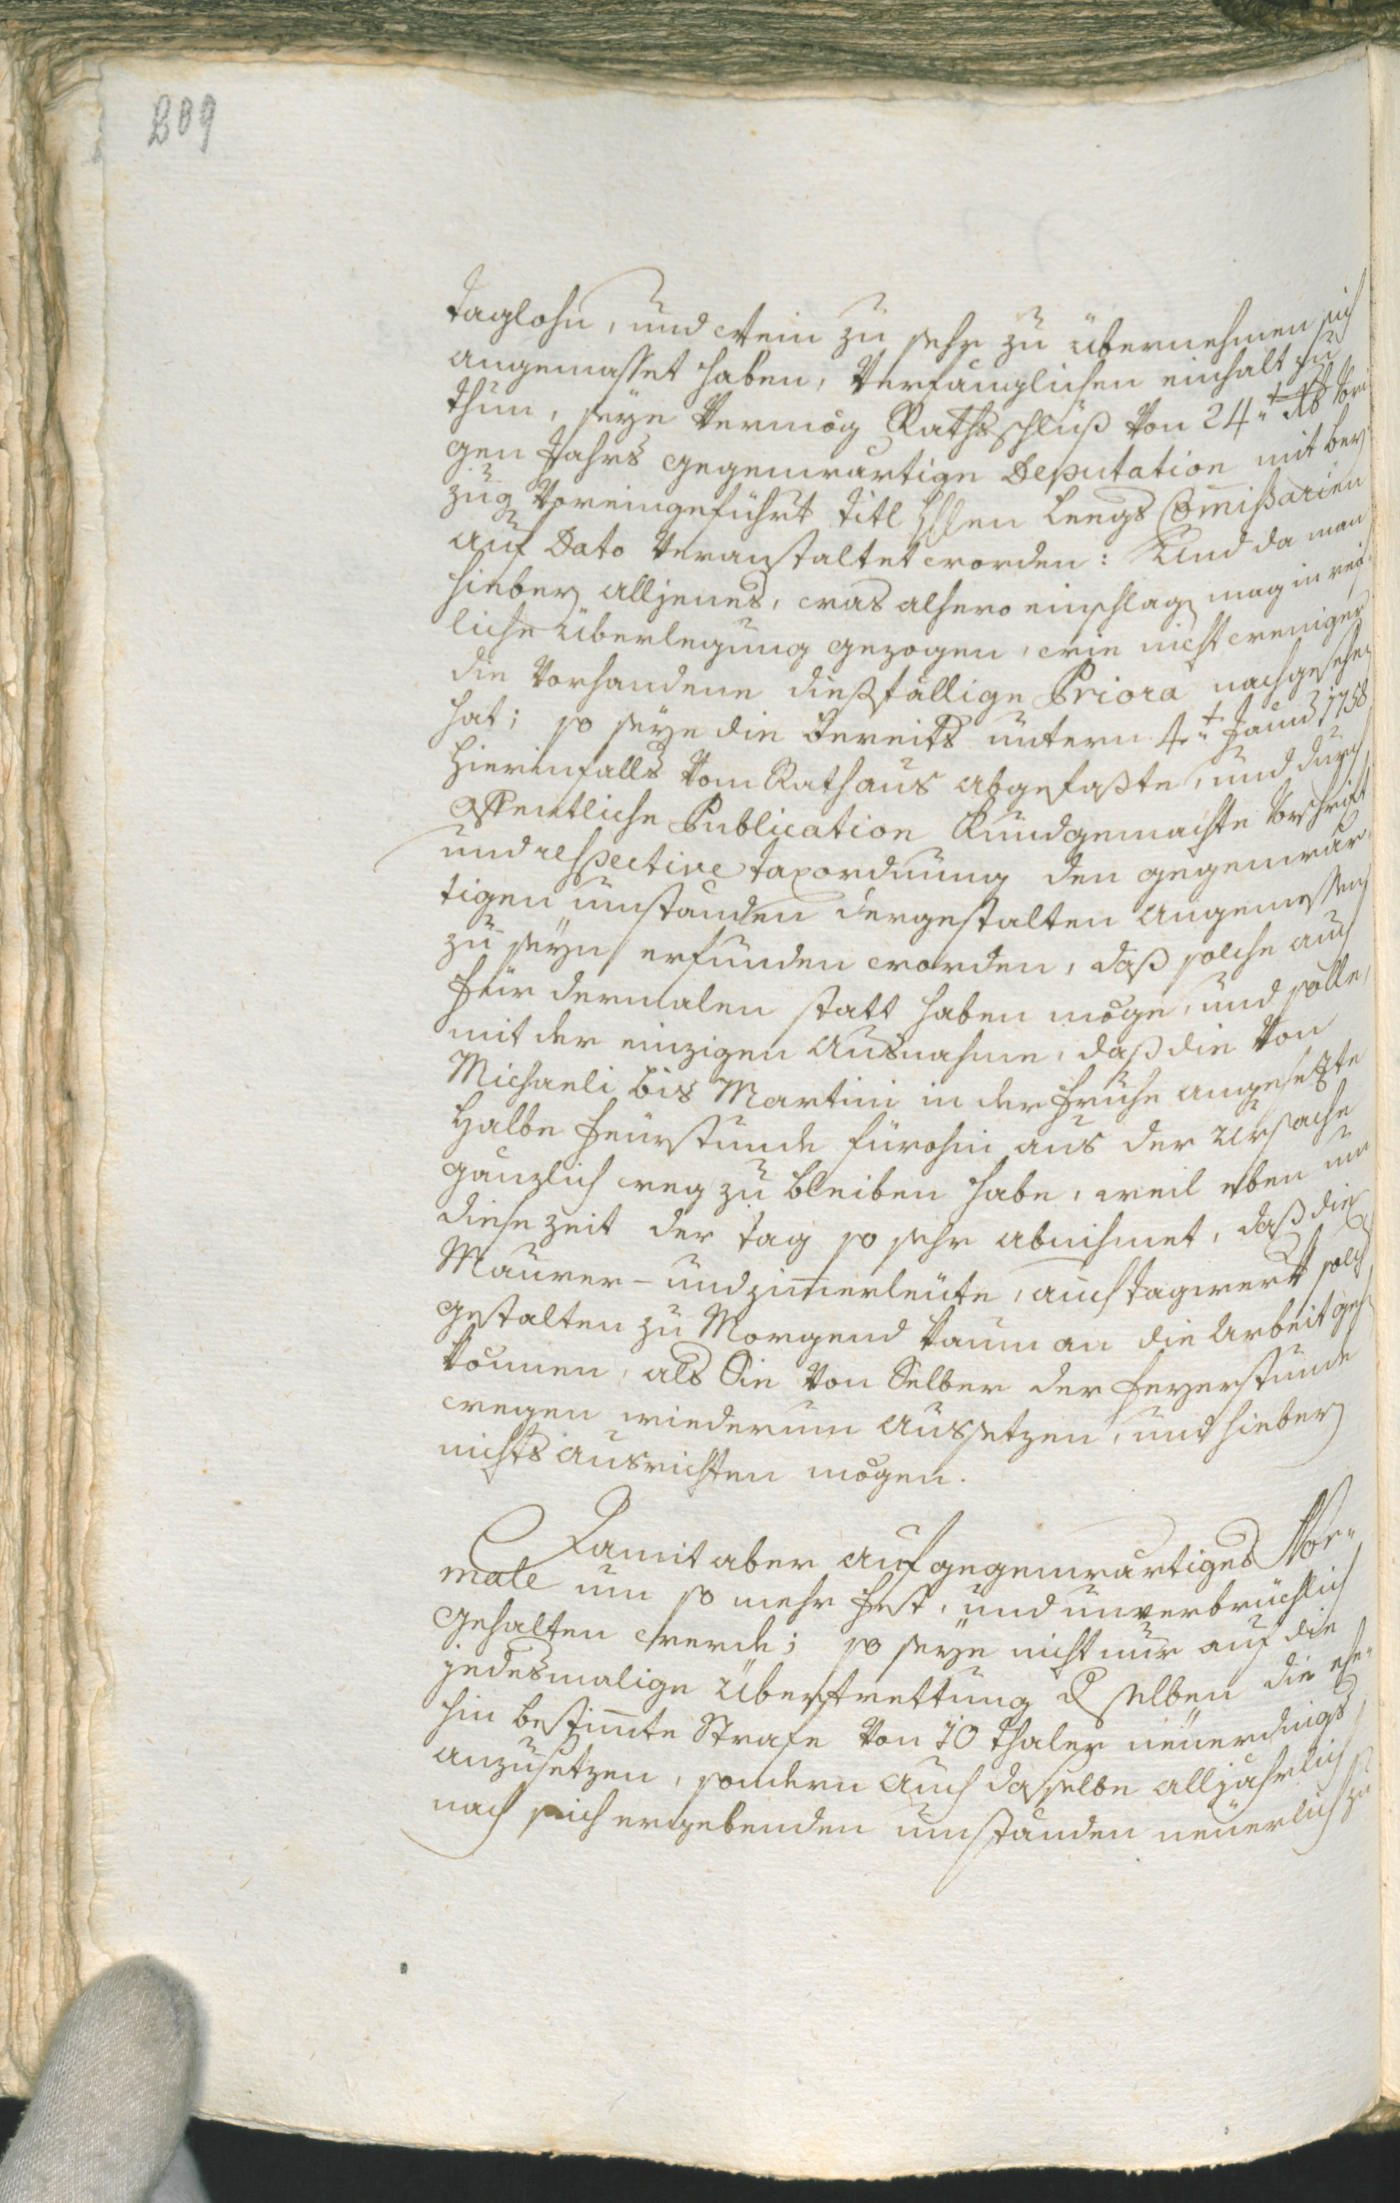 209
Taglohn, und Wein zu sehr zu übernehmen sich
angemasset haben, verfänglichen einhalt zu
thun, seye vermög Rathsschluß von 24t vori
gen Jahrs gegenwärtige Deputation mit bey
zug voreingeführt titl Herren Commißarien
auf Dato veranstaltet worden: Und da man
hiebey alljenes, was alhero einschlagen mag in reif
liche überlegung gezogen, wie nicht weniger
die vorhandene dießfällige Priora nachgesehen
hat; so seye die bereits untern 4t 1758
hierinfalls vom Rathaus abgefaßte, und durch
offentliche Publication kundgemachte Vorschrift
und respective taxordnung den gegenwär
tigen umständen dergestalten angemessen
zu seyn erfunden worden, daß solche auch
für dermalen statt haben möge, und solle,
mit der einzigen Ausnahme, daß die von
Michaeli bis Martini in der Frühe angesetzte
halbe Feirstunde fürohin aus der Ursache
gänzlich weg zu bleiben habe, weil eben um
diese zeit der tag so sehr abnihmet, daß die
Maurer- und zimerleüte, auch tagwerk solch
gestalten zu Morgend kaum an die Arbeit gehen
können, als Sie von Selber der Feyerstunde
wegen wiederum aussetzen, und hiebey
nichts ausrichten mögen.
Damit aber auf gegenwärtiges Nor-
male um so mehr fest, und unverbrüchlich
gehalten werde; so seye nicht nur auf die
jedesmalige Übertrettung desselben die ehe-
hin bestimte Strafe von 10 thaler neüerdings
anzusetzen, sondern auch daselbe alljährlich
nach sich ergebenden umständen neüerlich zu